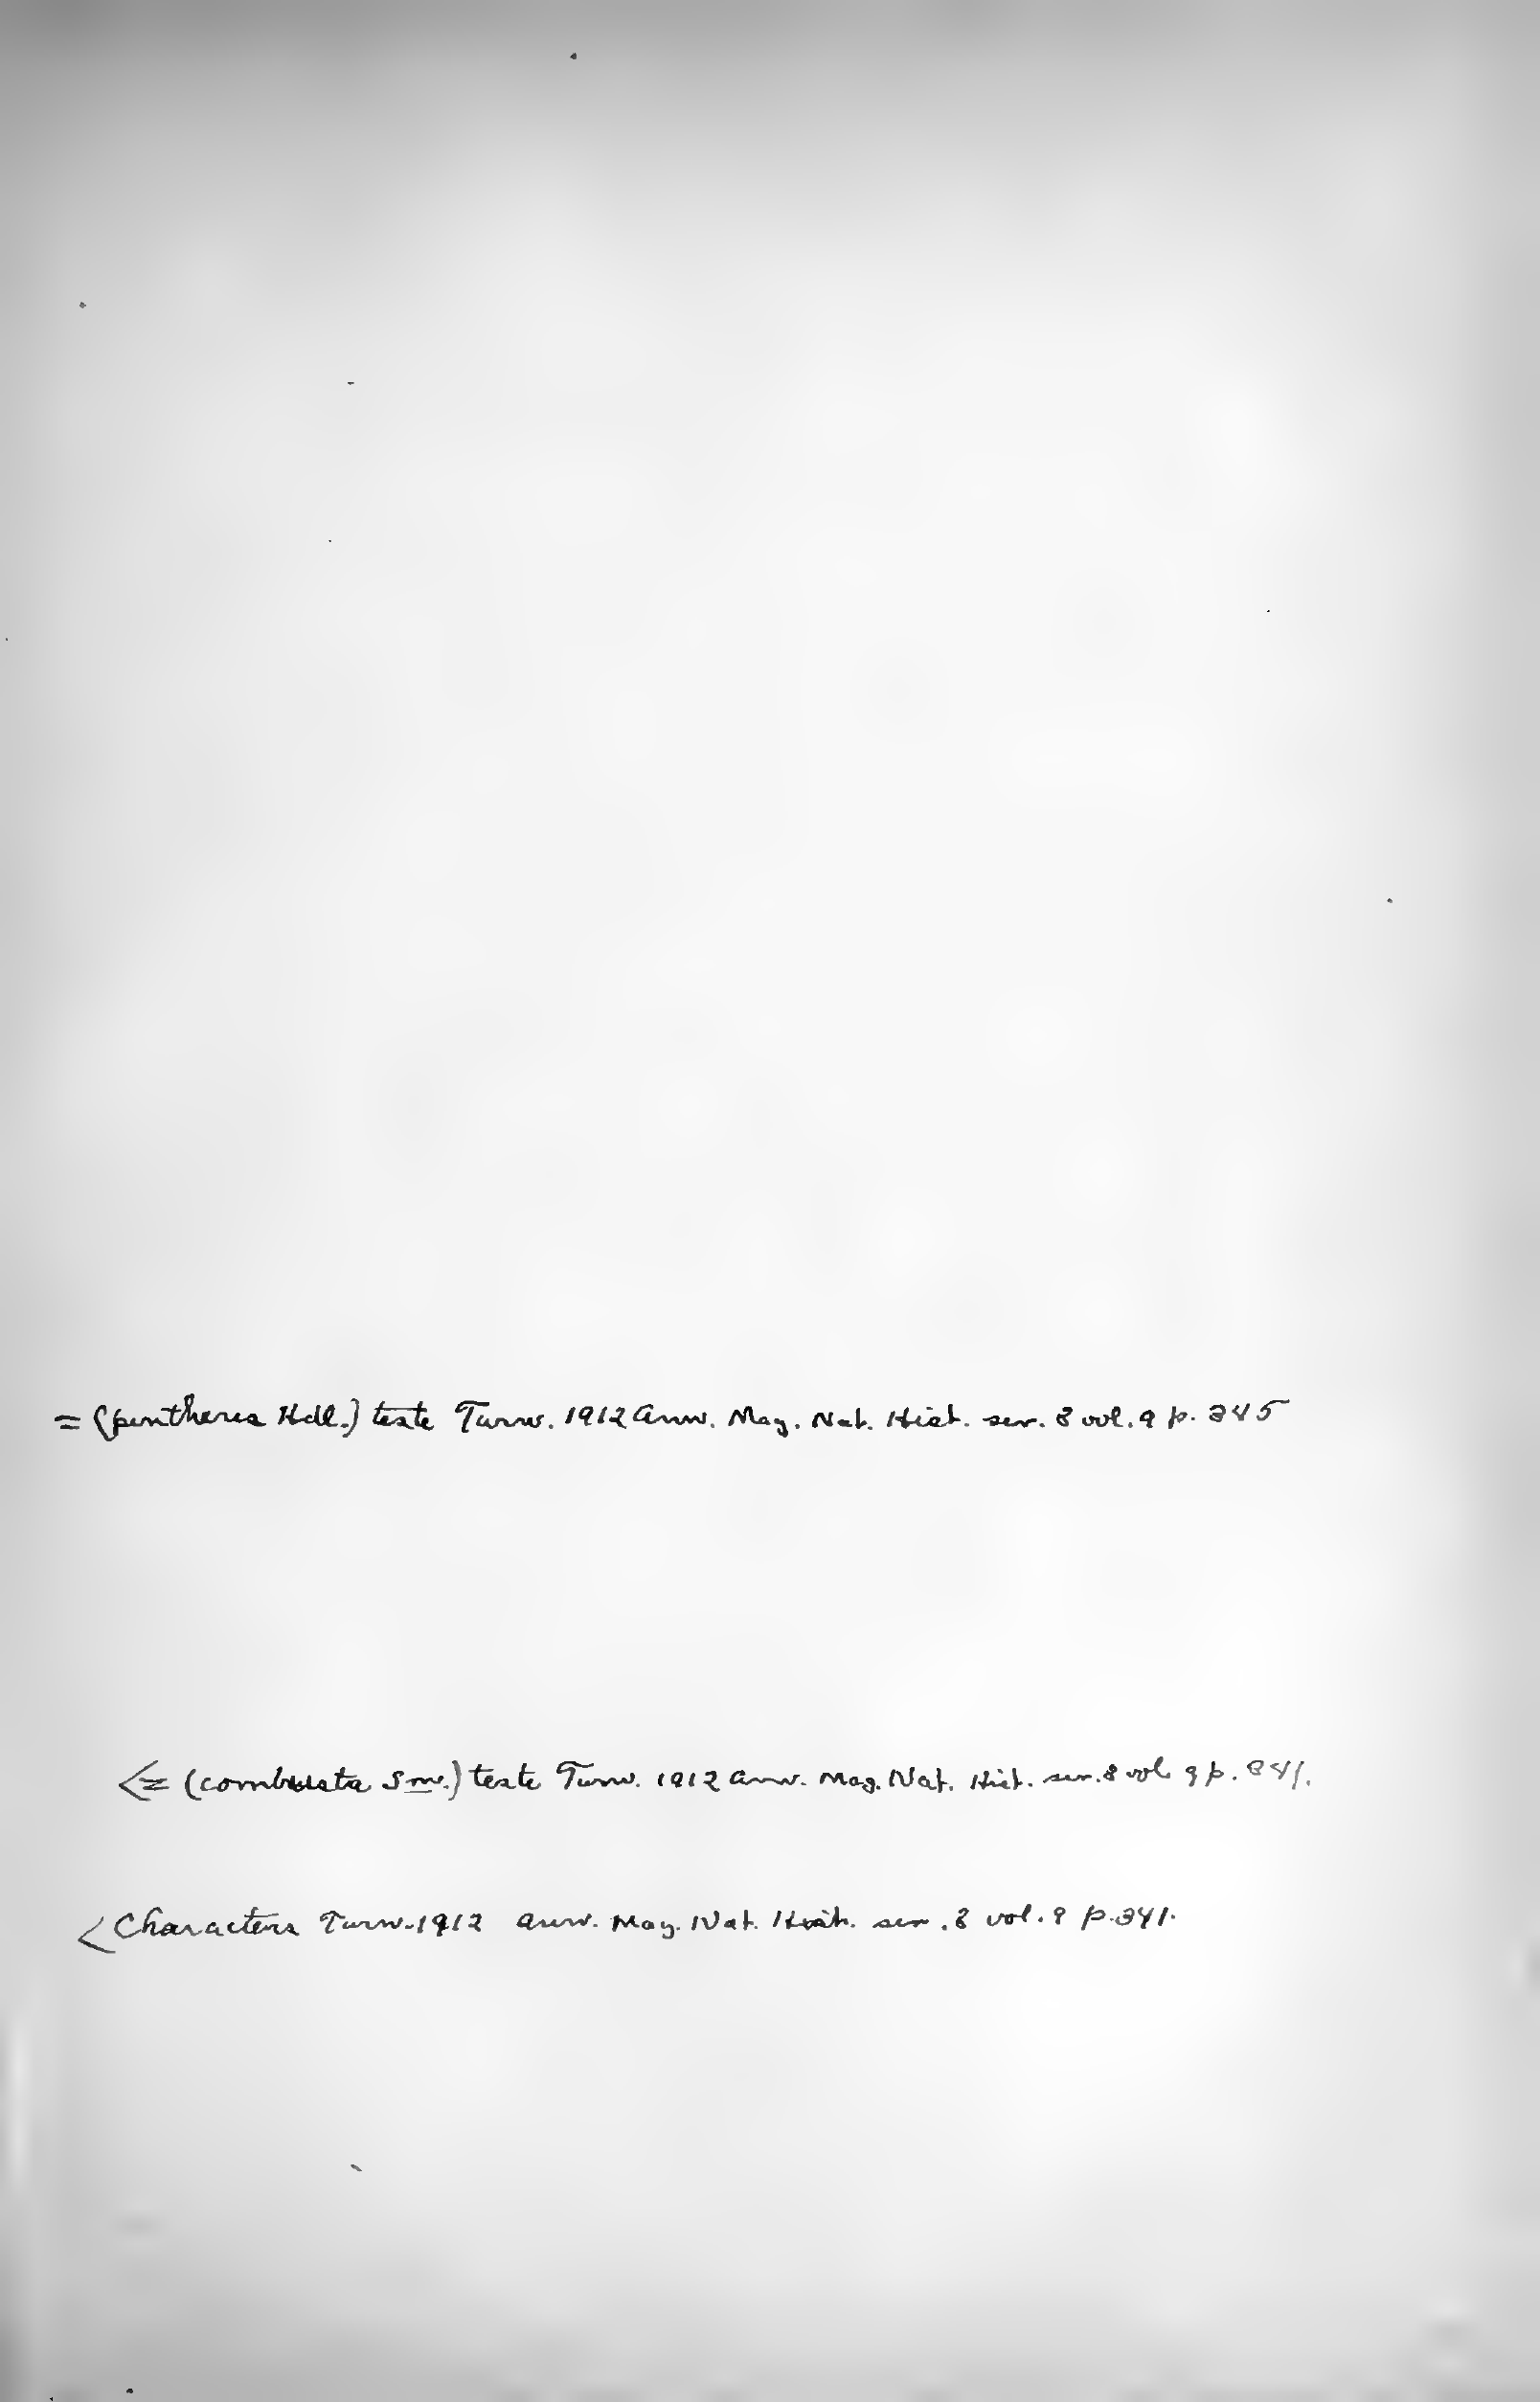 = (pentheres Hdl.) teste Turn. 1912 Ann. Mag. Nat. Hist. ser. 8 vol. 9 p. 345
<= (combusta Sm.) teste Turn. 1912 Ann. Mag. Nat. Hist. ser. 8 vol 9 p. 341.
< Characters Turn. 1912 Ann. Mag. Nat. Hist. ser. 8 vol. 9 p. 341.